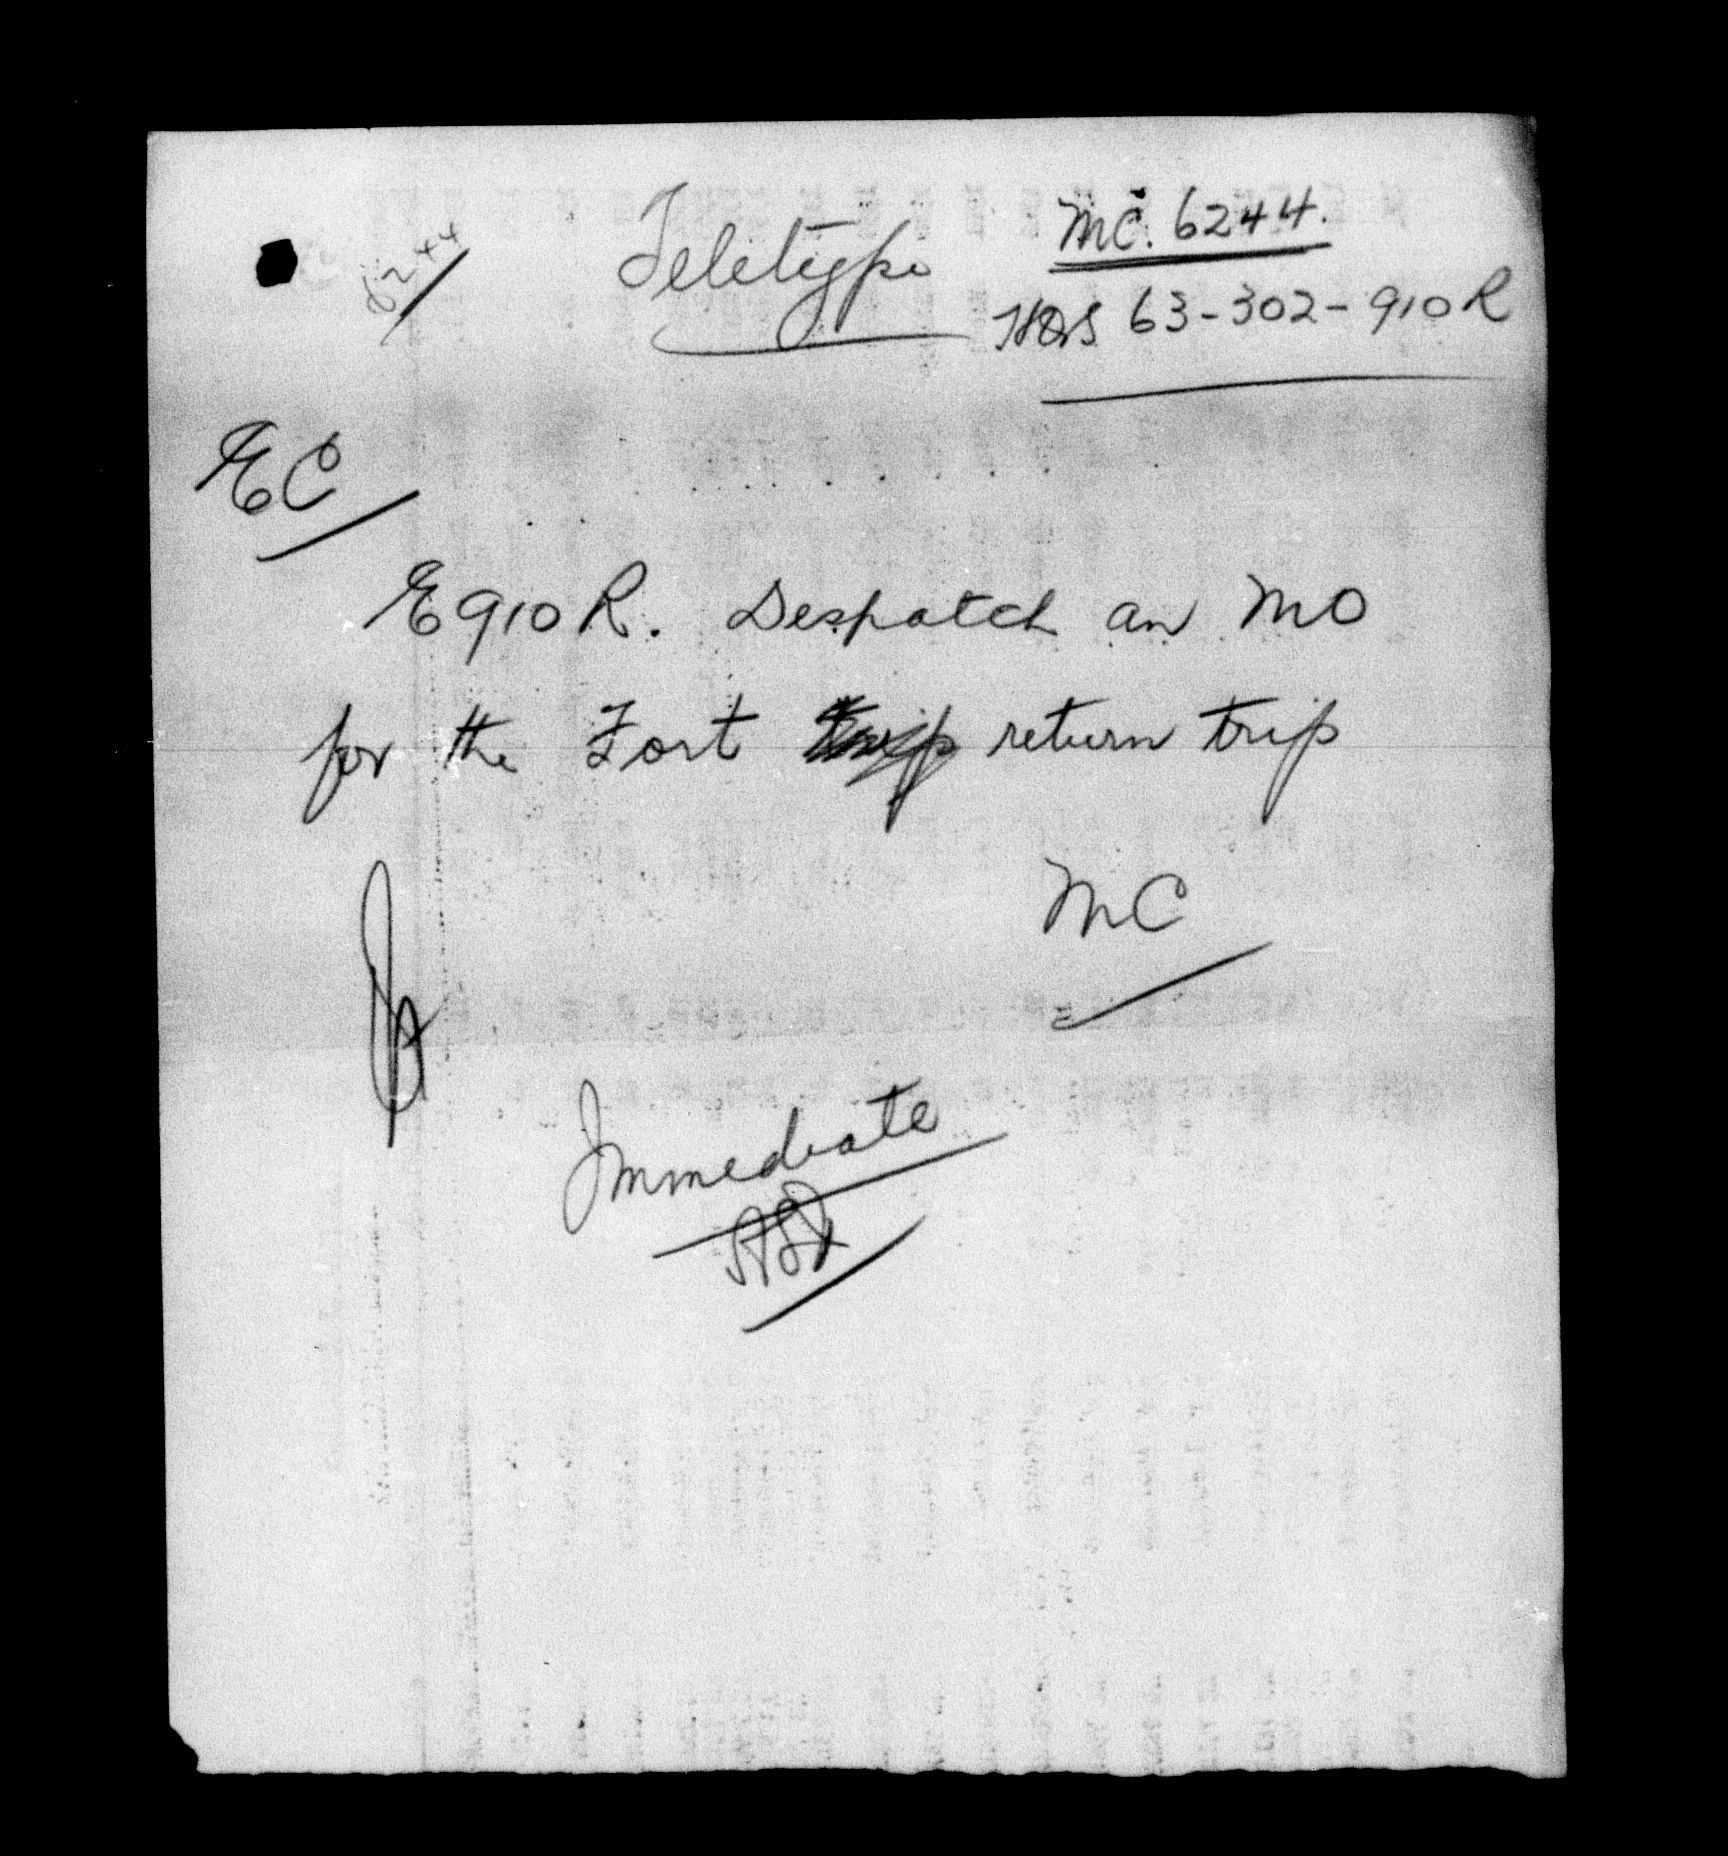 6244
Teletype
MC. 6244.
HQS 63-302-910R
EC
E910R. Despatch an MO
for the Fort return trip
MC
Immediate